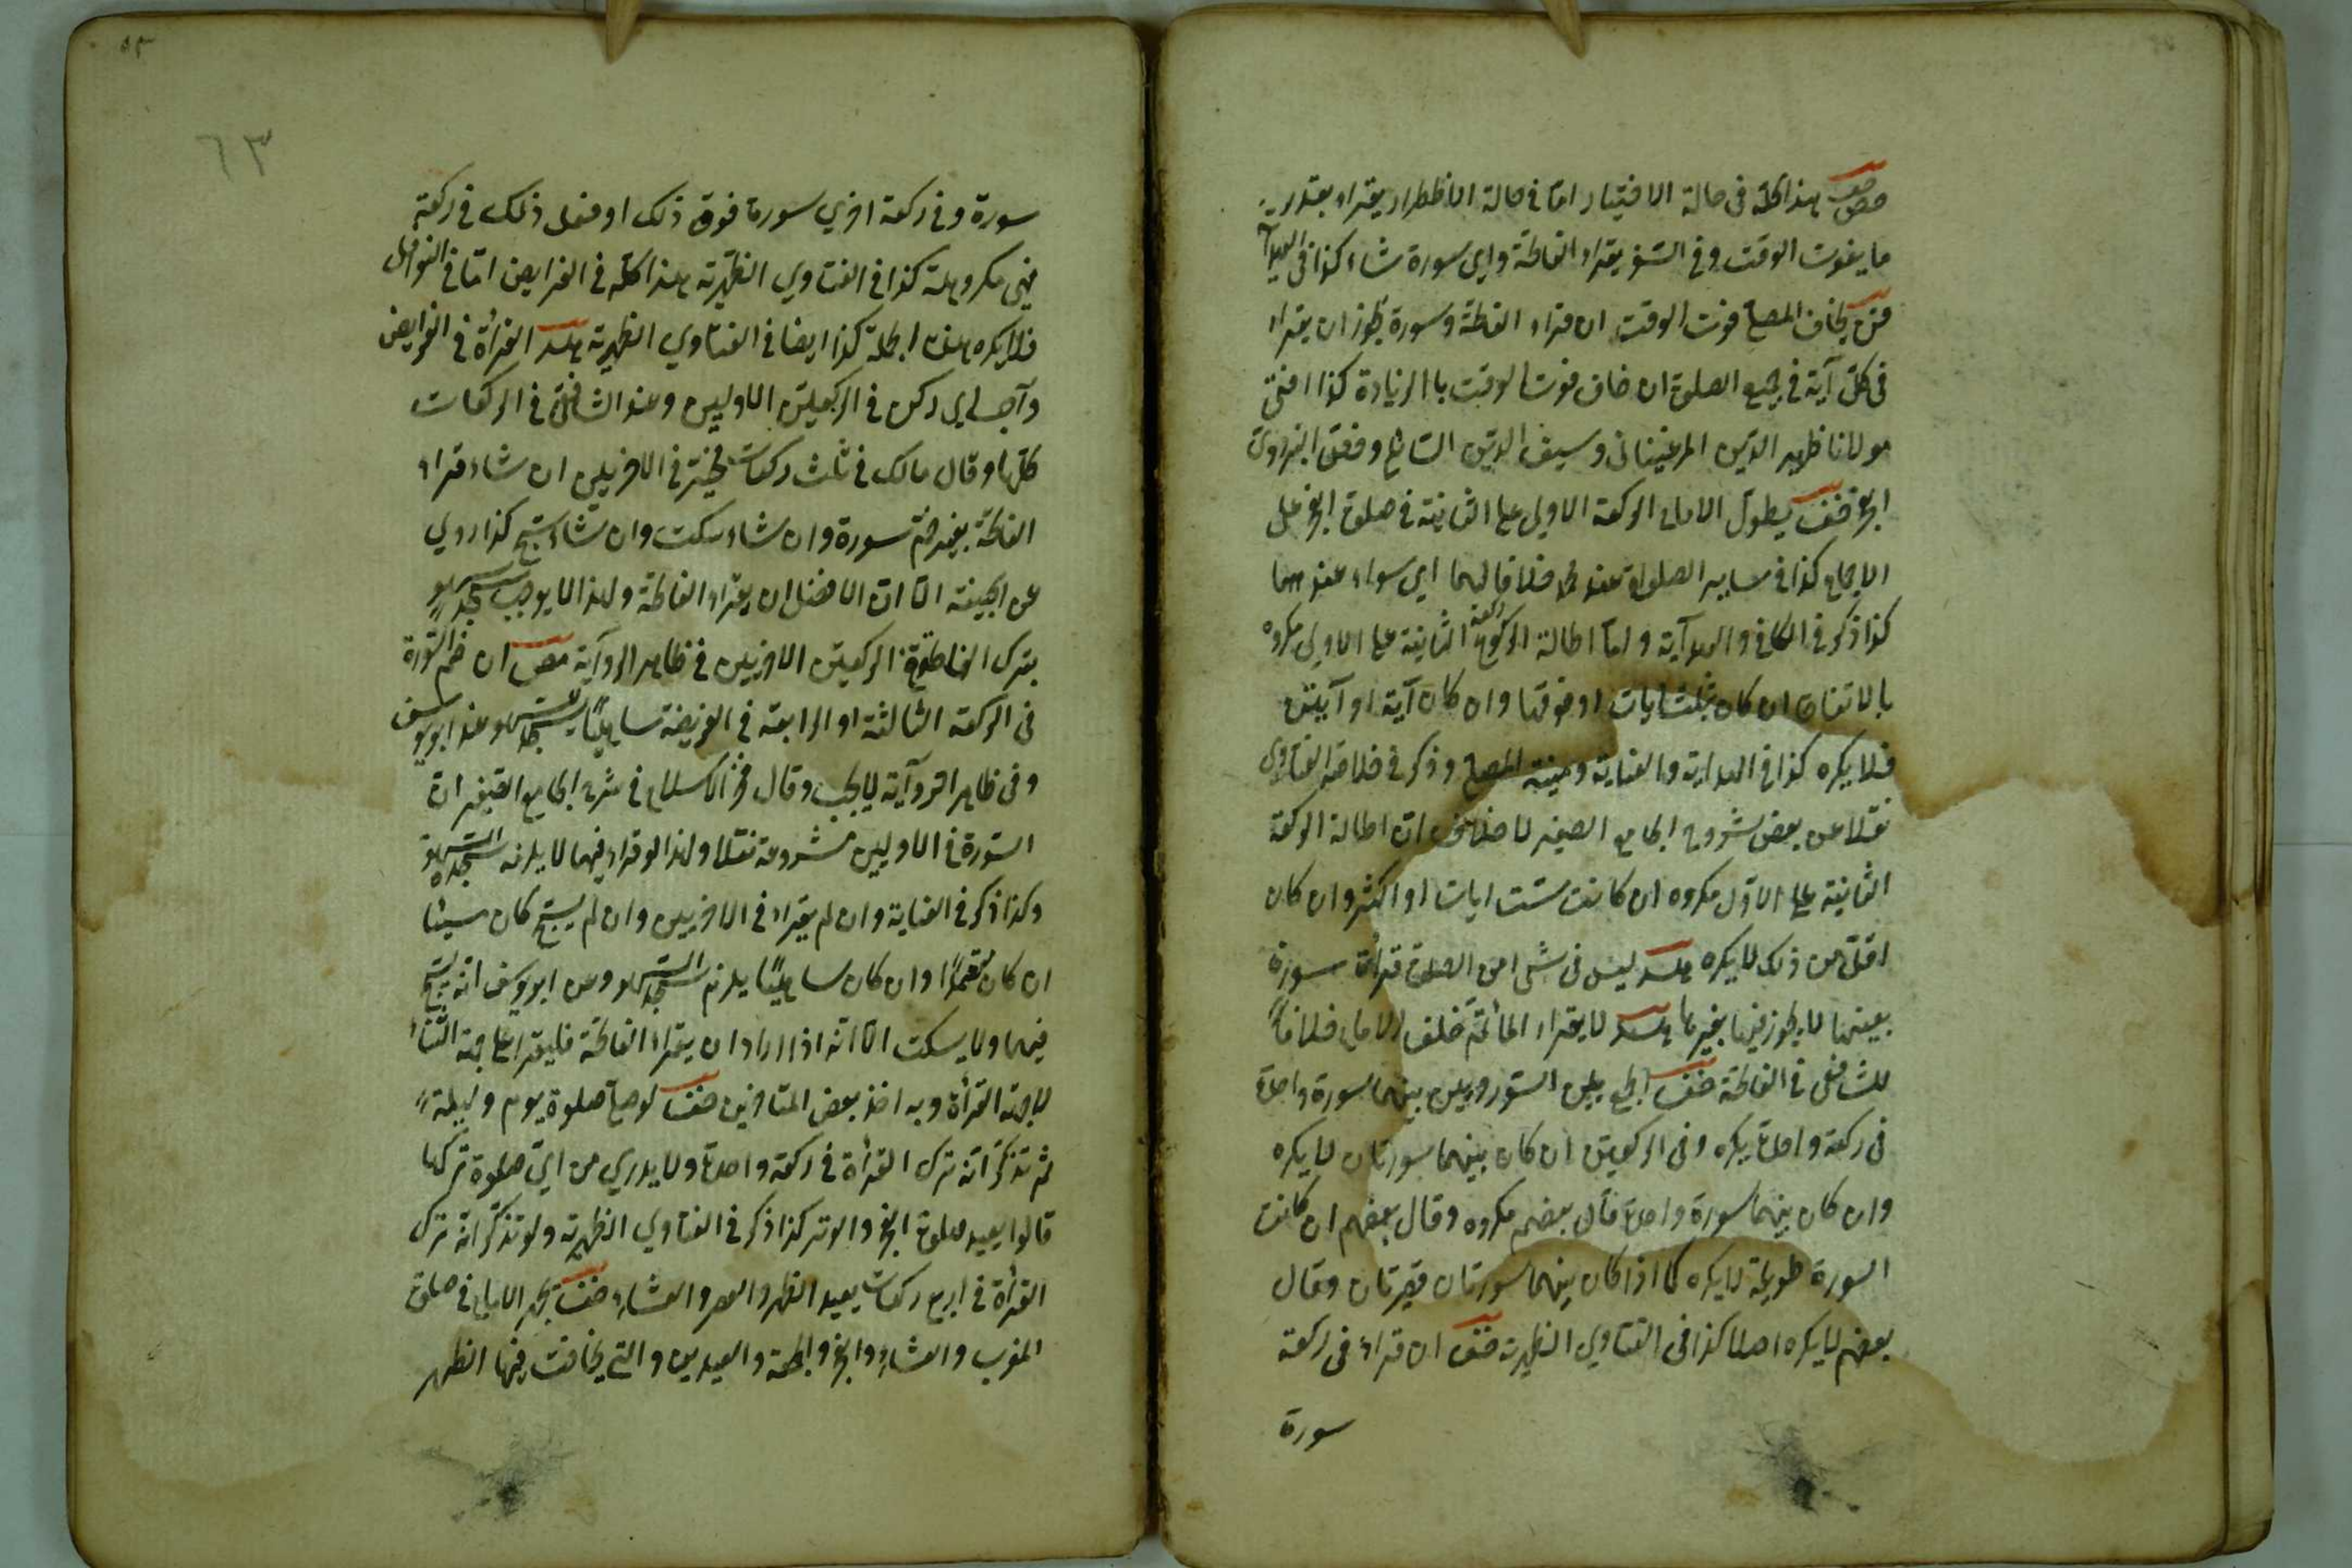 هذا كله فى حالة الاختيار امّا فى حالة الاظطرار يقراء بقدر
ما يفوت الوقت وفى السّفر يقراء الفاتحة واى سورة شاء كذا فى الهداية
يخاف المصلى فوت الوقت ان قراء الفاتحة وسورة يجوز ان يقراء
فى كلّ آية فى جميع الصلوة ان خاف فوت الوقت با الزيادة كذا افتى
مولانا ظهير الدّين المرغينانى وسيف الدين
يطول الامام الركعة الاولى على الثانية فى صلوة الفجر على
الاجماع كذا فى ساير الصلواة عند محمد خلافا لهما اى سواء عندهما
كذا ذكر فى الكافى والهدآية وامّا اطالة الركعة الثانية على الاولى مكروه
بالاتفاق ان كان بثلث ايات او فوقها وان كان آية او آيتين
فلا يكره كذا فى الهداية والعناية ومنية المصلى وذكر فى خلاصة الفتاوى
نقلا عن بعض شروح الجامع الصغير ان اطالة الركعة
الثانية على الاوّل مكروه ان كانت ستت ايات او اكثر وان كان
اقلّ من ذلك لا يكره ليس فى شئ من الصلوة قرأة سورة
بعينها لا يجوز غيرها لا يقراء المأتمّ خلف الامام خلافاً
للشافعى فى الفاتحة الجمع بين السّورتين بينهما سورة واحدة
فى ركعة واحدة يكره وفى الركعتين ان كان بينهما سورتان لا يكره
وان كان بينهما سورة واحدة قال بعضهم مكروه وقال بعضهم ان كانت
السورة طويلة لا يكره كما اذا كان بينهما سورتان قصيرتان وقال
بعضهم لا يكره اصلا كذا فى الفتاوى الظهيرية ان قراء فى ركعة
سورة
٥٣
٦٣
سورة وفى ركعة اخرى سورة فوق ذلك او فعل ذلك فى ركعة
فهى مكروهة كذا فى الفتاوى الظهيرية هذا كله فى الفرايض امّا فى النوافل
فلا يكره كذا ايضا فى الفتاوى الظهيرية القرأة فى الفرايض
فى الركعتين الاوليين وعند الشافعى فى الركعات
كلّها وقال مالك فى ثلث ركعات يخيّر فى الاخريين ان شاء قراء
الفاتحة بغير ضمّ سورة وان شاء سكت وان شاء سبّح كذا روى
عن ابحنيفة الّا ان الافضل ان يقراء الفاتحة ولهذا لا يوجب سجدة السهو
بترك الفاتحة فى الركعتين الاخريين فى ظاهر الروآية ان ضم السّورة
فى الركعة الثالثة او الرابعة فى الفريضة ساهيًا يسجد للسهو عند ابو يوسف
وفى ظاهر الروآية لا يجب وقال فخر الاسلام فى شرح الجامع الصّغير ان
السّورة فى الاوليين مشروعة نفلا ولهذا لو قراء فيهما لا يلزمه سجدة السهو
وكذا ذكر فى العناية وان لم يقراء فى الاخريين وان لم يسبّح كان سيئا
ان كان متعمّدًا وان كان ساهيًا يلزم سجدة السهو وعن ابو يوسف انّه يسبّح
فيهما ولا يسكت الّا انّه اذا اراد ان يقراء الفاتحة فليقراء على جهة الثناء
لا جهة القرأة وبه اخذ بعض المتأخرين لو صلّى صلوة يوم وليلة
ثم تذكّر انّه ترك القرأة فى ركعة واحدة ولا يدرى من اىّ صلوة تركها
قالوا يعيد صلوة الفجر والوتر كذا ذكر فى الفتاوى الظهيرية ولو تذكّر انّه ترك
القرأة فى اربع ركعات يعيد الظهر والعصر والعشاء يجهر الامام فى صلوة
المغرب والعشاء والفجر والجمعة والعيدين والتى يخافت فيها الظهر